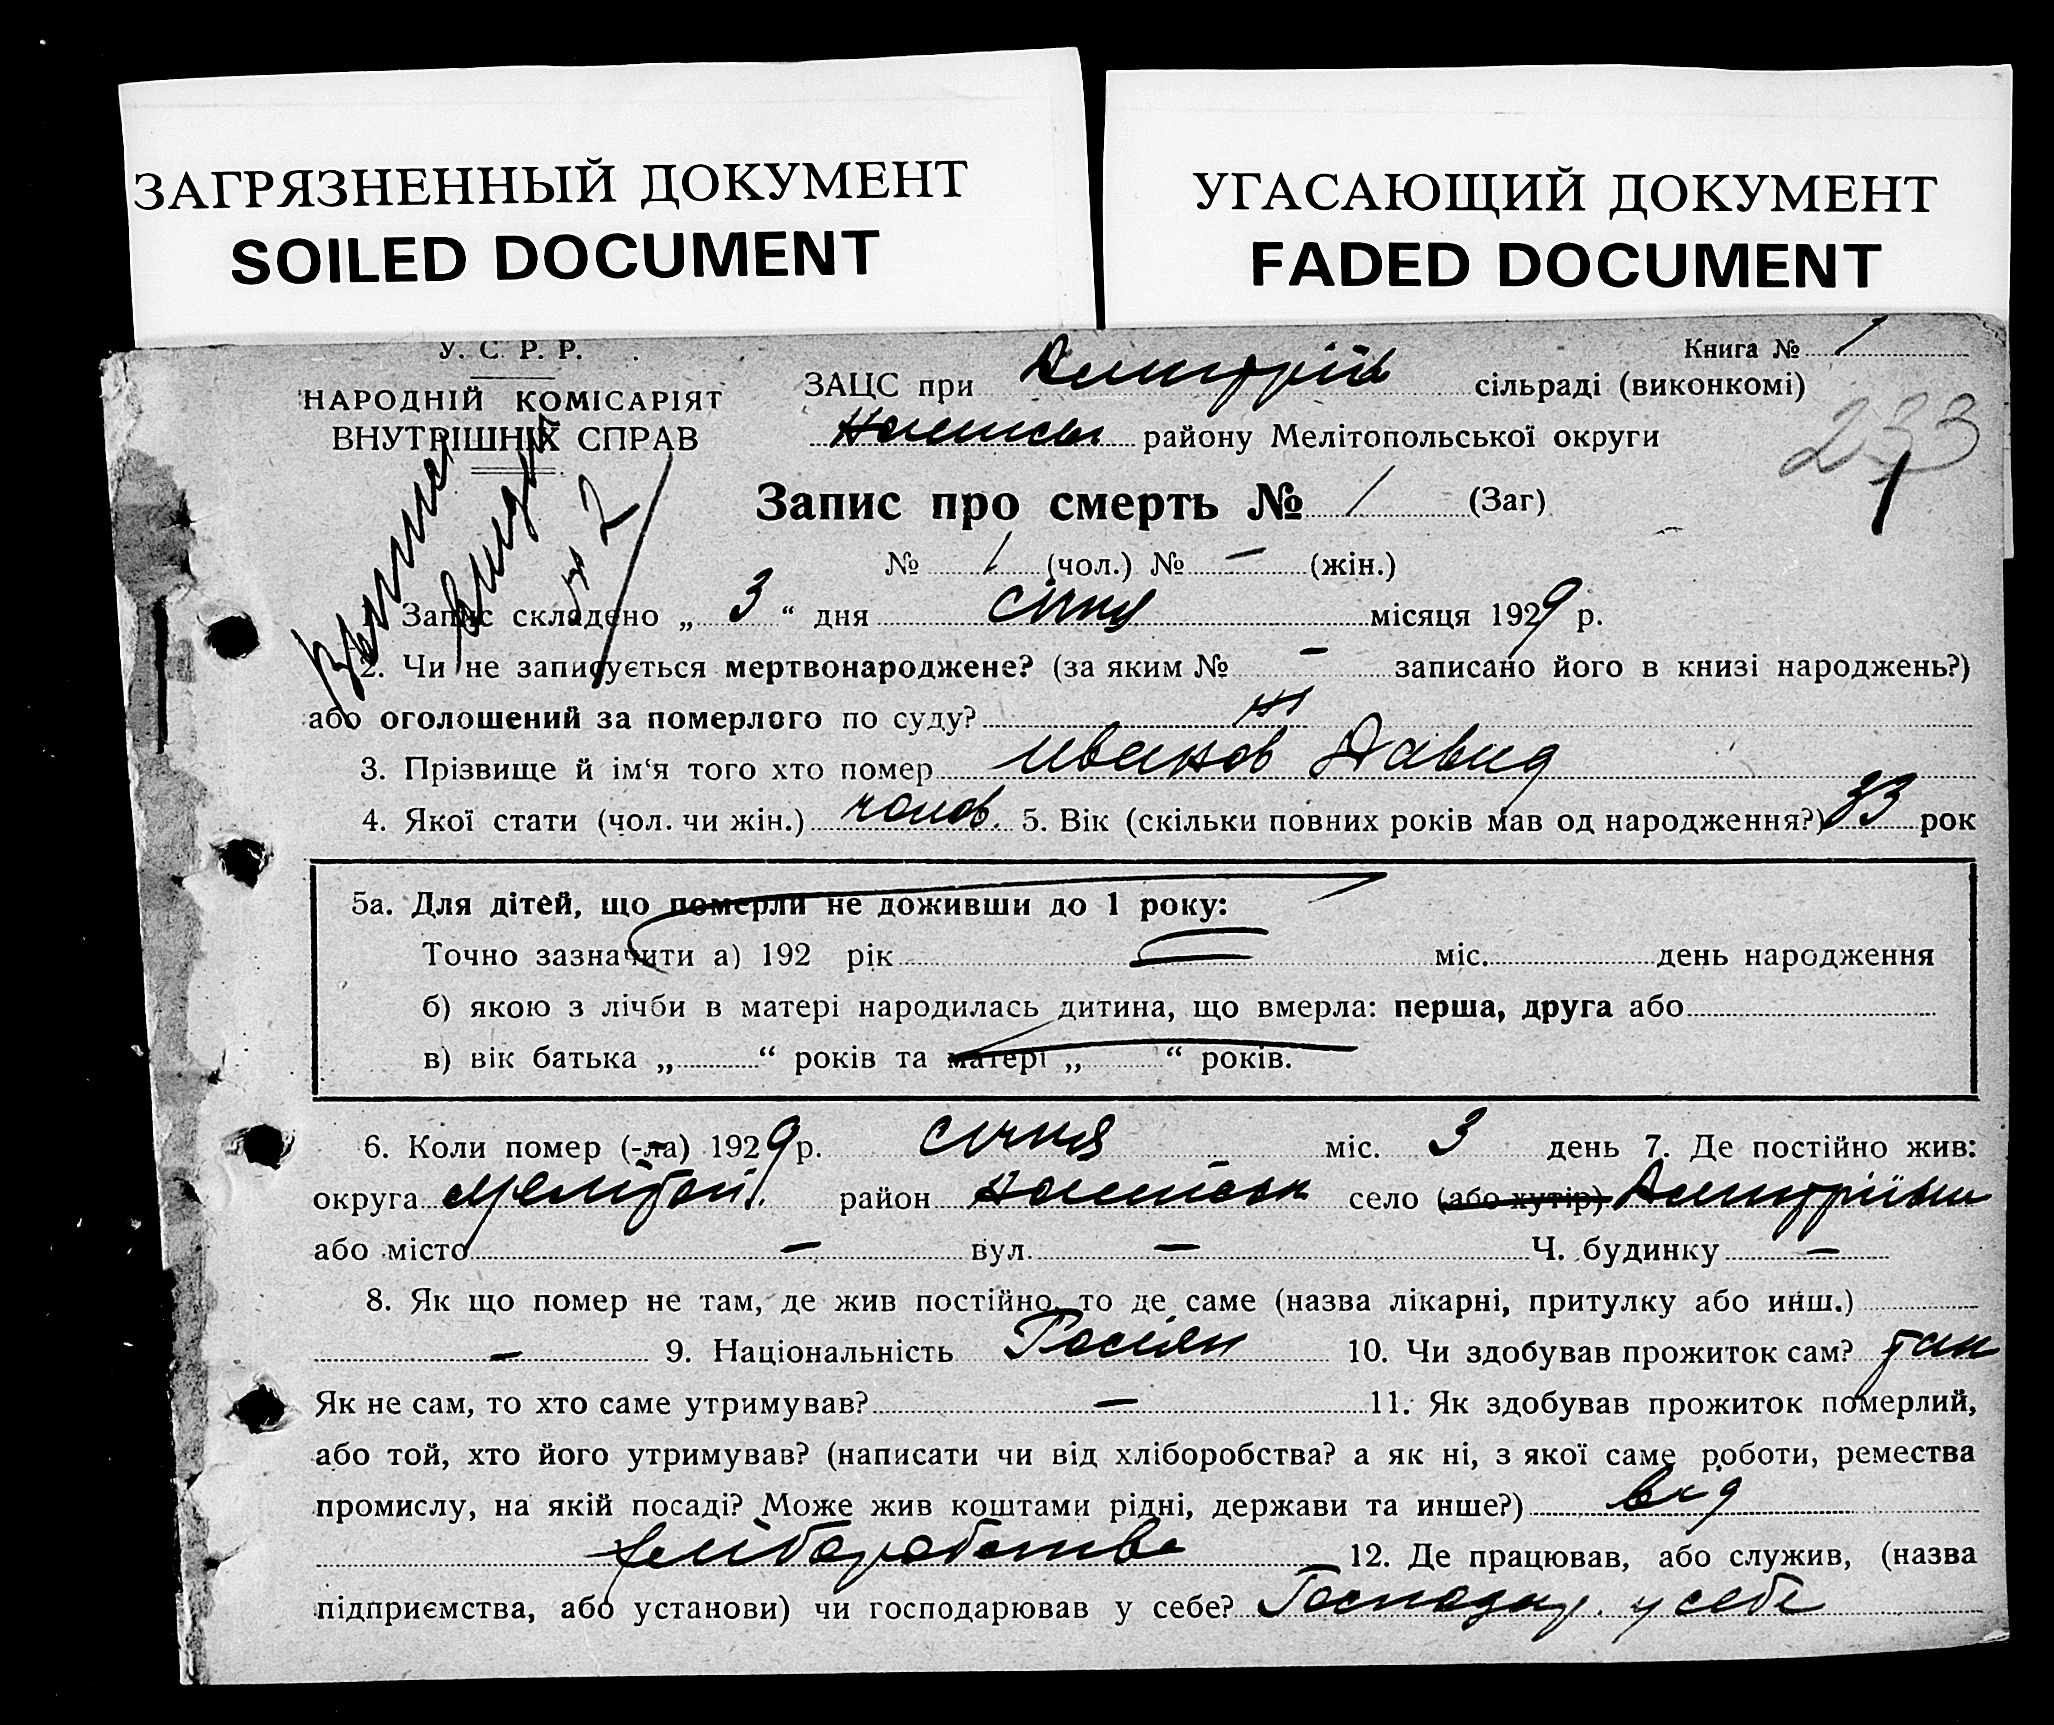 ЗАГРЯЗНЕННЫЙ ДОКУМЕНТ
SOILED DOCUMENT
УГАСАЮЩИЙ ДОКУМЕНТ
FADED DOCUMENT
У. С. Р. Р.
НАРОДНІЙ КОМІСАРІЯТ
ВНУТРІШНІХ СПРАВ
Книга № 1
ЗАЦС при Димитрів сільраді (виконкомі)
району Мелітопольської округи
233
1
Запис про смерть № 1 (Заг)
№ 1 (чол.) № — (жін.)
№ 2
1. Запис складено „ 3 “ дня січня місяця 1929 р.
2. Чи не записується мертвонароджене? (за яким № — записано його в книзі народжень?)
або оголошений за померлого по суду? ні
3. Прізвище й ім‘я того хто помер Иванов Давид
4. Якої стати (чол. чи жін.) чолов. 5. Вік (скільки повних років мав од народження?) 33 рок
5а. Для дітей, що померли не доживши до 1 року:
Точно зазначити а) 192 рік міс. день народження
б) якою з лічби в матері народилась дитина, що вмерла: перша, друга або
в) вік батька „ “ років та матері „ “ років.
6. Коли помер (-ла) 1929 р. січня міс. 3 день 7. Де постійно жив:
округа Мелітоп. район село (або хутір) Димитрівка
або місто — вул. — Ч. будинку —
8. Як що помер не там, де жив постійно, то де саме (назва лікарні, притулку або инш.)
— 9. Національність Росіян 10. Чи здобував прожиток сам? так
Як не сам, то хто саме утримував? — 11. Як здобував прожиток померлий,
або той, хто його утримував? (написати чи від хліборобства? а як ні, з якої саме роботи, ремества
промислу, на якій посаді? Може жив коштами рідні, держави та инше?) від
хліборобства 12. Де працював, або служив, (назва
підприємства, або установи) чи господарював у себе? Господар. у себе